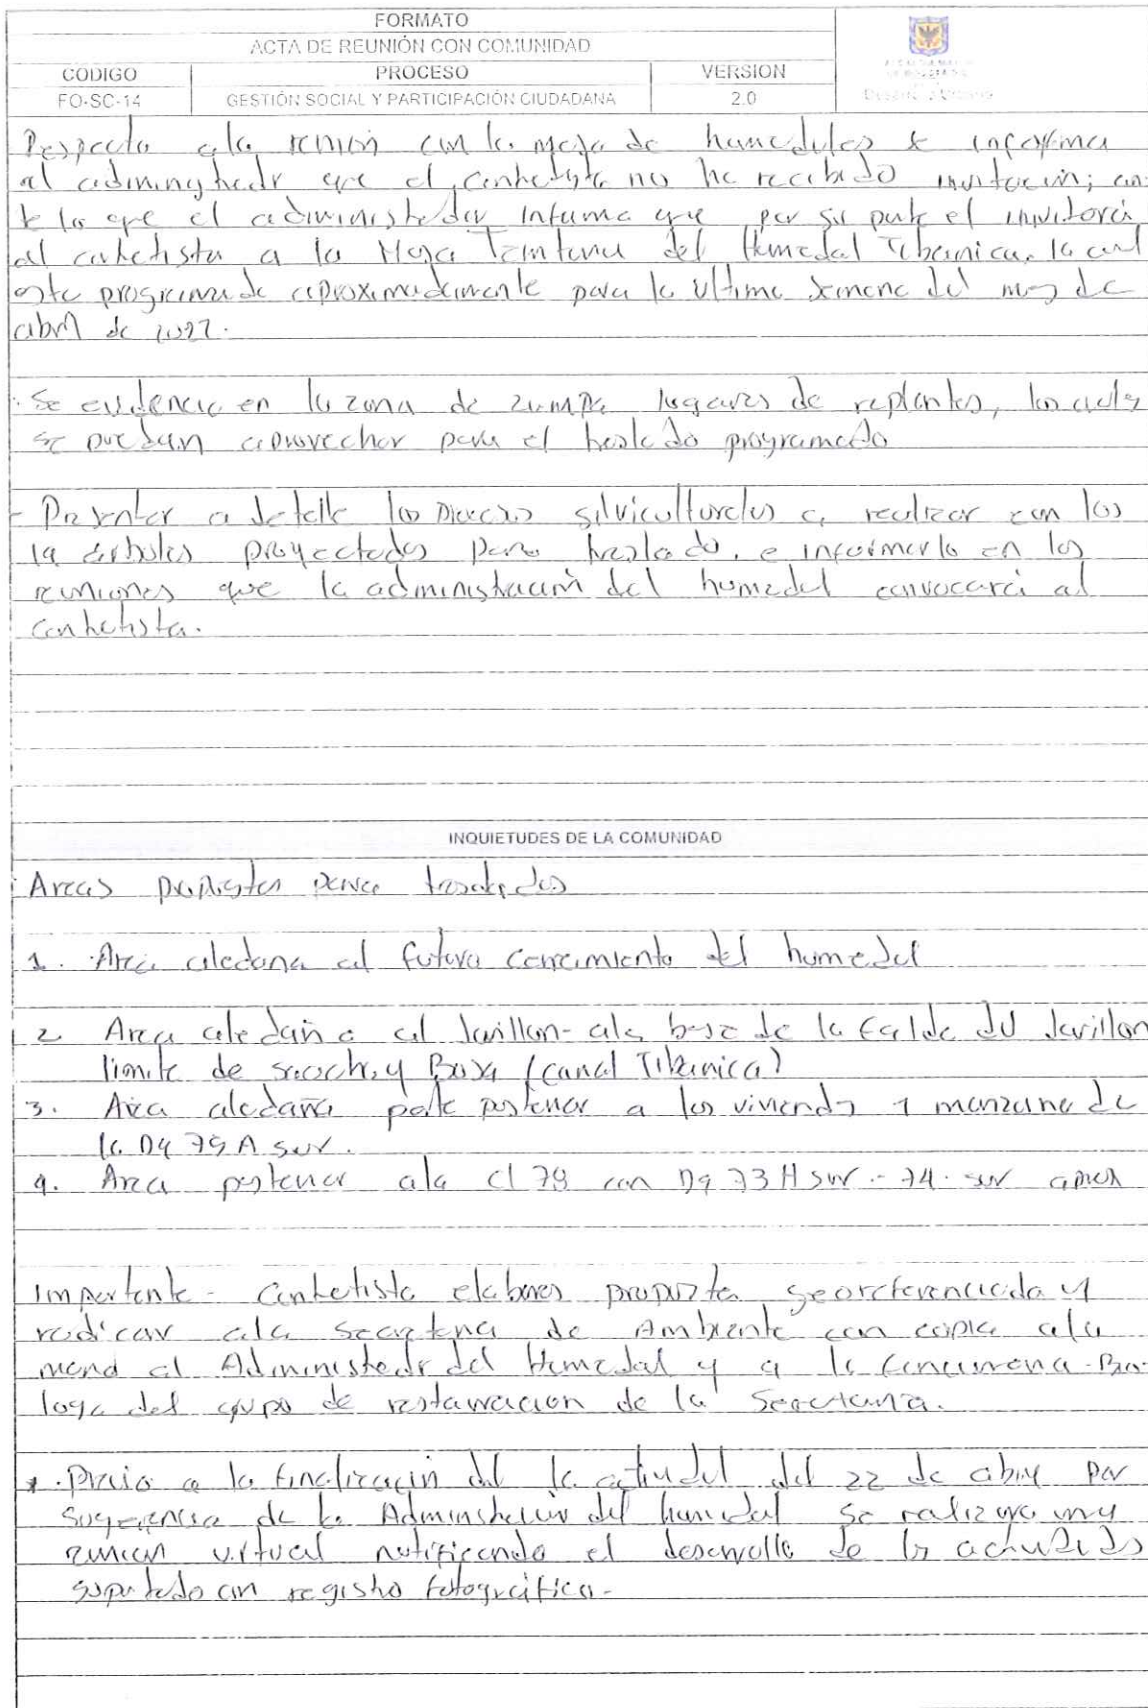 FORMATO
ACTA DE REUNIÓN CON COMUNIDAD
CODIGO PROCESO VERSION
FO-SC-14 GESTIÓN SOCIAL Y PARTICIPACIÓN CIUDADANA 2.0
Respecto a la reunión con la mesa de humedales se informa
al administrador que el contratista no ha recibido invitación; an-
te lo que el administrador informa que por su parte el invitará
al contratista a la Mesa Territorial del Humedal Tibanica, la cual
esta programada aproximadamente para la ultima semana del mes de
abril de 2022.
Se evidencia en la zona de lugares de replantes, los cuales
se puedan aprovechar para el traslado programado
- Presentar a detalle los procesos silviculturales a realizar con los
19 árboles proyectados para traslado, e informarlo en las
reuniones que la administración del humedal convocará al
contratista.
INQUIETUDES DE LA COMUNIDAD
Areas propuestas para traslados
1. Area aledana al futuro cerramiento del humedal
2 Area aledaña al Jarillon- ala base de la falda del Jarillon
limite de soacha y Bosa (canal Tibanica)
3. Area aledaña parte posterior a las viviendas 1 manzana de
la Dg 75 A sur.
4. Area posterior ala Cl 78 con Dg 73 H sur - 74 sur aprox
Importante - Contratista elabores propuesta georeferenciada y
radicar ala Secretaria de Ambiente con copia ala
mano al Administrador del Humedal y a la Bio-
loga del grupo de restauracion de la Secretaria.
. Previo a la finalización del la actividad del 22 de abril por
sugerencia de la Administración del humedal se realizara una
reunion virtual notificando el desarrollo de las actividades
soportado con registro fotográfico-